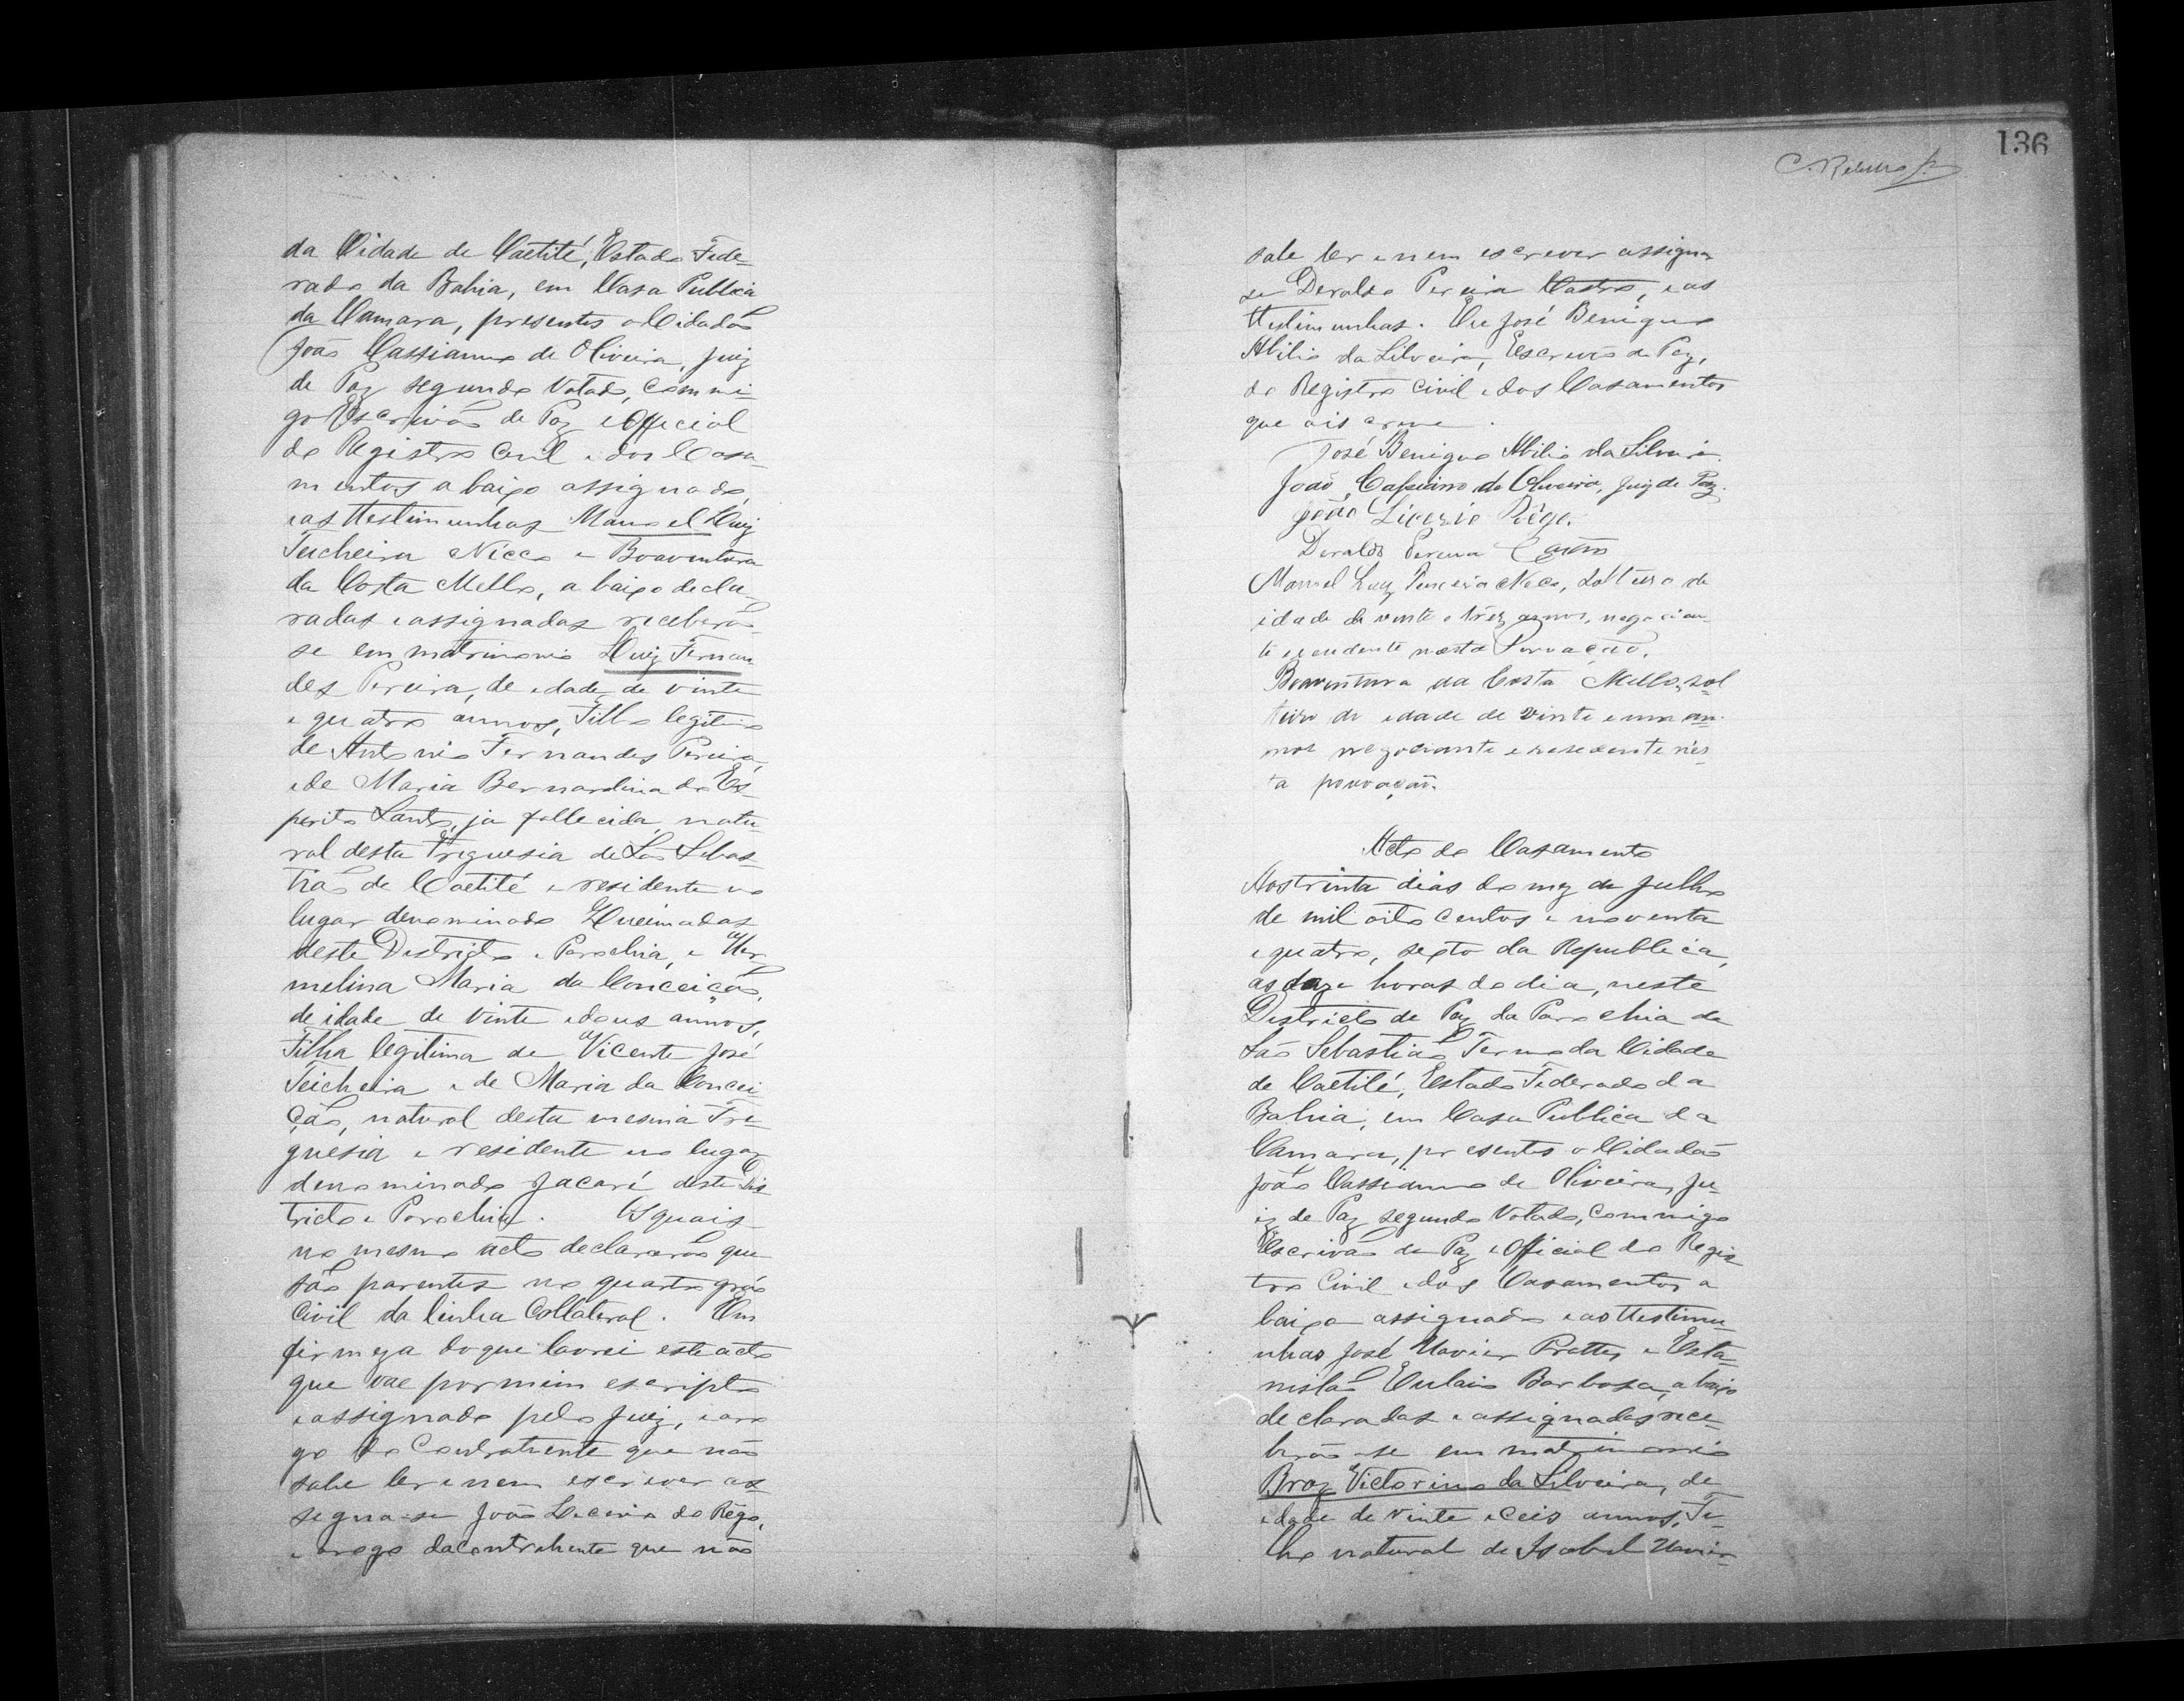 da Cidade de Caetité, Estado Fede-
rado da Bahia, em Casa Publica
da Camara, presentes o Cidadão
João Cassianno de Oliveira, Juiz
de Paz segundo Votado, commi-
go Escrivão de Paz e Official
do Registro Civil e dos Casa-
mentos abaixo assignado,
e as ttestimunhas Manoel Luiz
Teicheira Nicco e Boaventura
da Costa Mello, abaixo decla-
radas e assignadas receberão-
se em matrimonio Luiz Fernan-
des Pereira, de edade, de vinte
e quatro annos, Filho legitimo
de Antonio Fernandes Pereira,
e de Maria Bernardina do Es-
perito Santo, ja fallecida, natu-
ral desta Freguesia de São Sebas-
tião de Caetité e residente no
lugar denominado Queimadas
deste Destricto e Parochia, e Her-
melina Maria da Conceição,
de idade de vinte e dous annos,
Filha legitima de Vicente José
Teicheira e de Maria da Concei-
ção, natural desta mesma Fre-
guesia e residente no lugar
denominado Jacaré deste Dis-
tricto e Parochia. Os quais
no mesmo acto declararão que
são parentes no quarto gráo
Civil da linha Collateral. Em
firmeza do que lavrei este acto
que vae por mim escripto
e assignado pelo Juiz, e aro
go do Contratrente que não
sabe ler e nem escrever as
segna-se João Licerio do Rêgo,
e arogo da Contrahente que não
136
sabe ler e nem escrever assigna
se Deraldo Pereira Castro, e as
ttestimunhas. Eu José Benigno
Abilio da Silveira, Escrivão de Paz,
do Registro Civil e dos Casamentos
que o iscreve.
José Benigno Abilio da Silveira.
João Cassiano de Oliveira, Juiz de Paz.
João Licerio Rêgo.
Deraldo Pereira Castro
Manoel Luiz Teixeira Nicco, Solteiro de
idade de vinte e trez annos, negocian-
te e rezidente nesta Povoação.
Boaventura da Costa Mello, sol
teiro de edade de vinte e um an-
nos negociante e resedente nes
ta povoação.
Acto do Casamento
Aos trinta dias do mez de Julho
de mil oito centos e noventa
e quatro, sexto da Republica,
as doze horas do dia, neste
Destricto de Paz da Parochia de
São Sebastião Termo da Cidade
de Caetité, Estado Federado da
Bahia, em Casa Publica da
Camara, presentes o Cidadão
João Cassianno de Oliveira, Ju-
iz de Paz segundo Votado, commigo
Escrivão de Paz e Official do Regis
tro Civil e dos Casamentos a
baixo assignado e as ttestimu-
nhas José Xavier Prattes e Esta-
nislão Eulaio Barbosa, abaixo
declaradas e assignadas rece-
berão-se em matrimonio
Braz Victorino da Silveira, de
edade de vinte e Ceis annos, Fi-
lho natural de Isabel Xavier